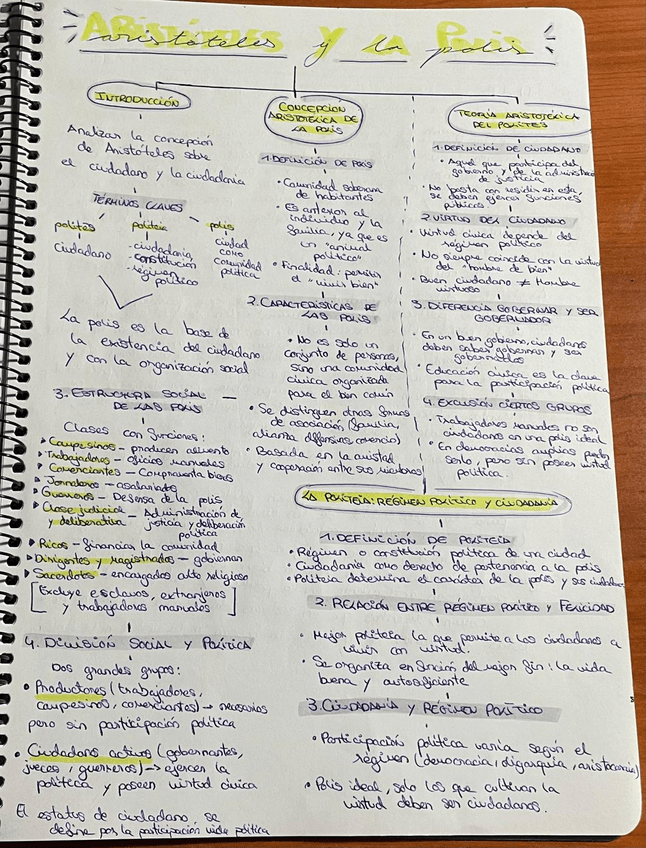 Aristóteles y la Polis
INTRODUCCIÓN
Analizar la concepción
de Aristóteles sobre
el ciudadano y la ciudadanía
TÉRMINOS CLAVES
polites
ciudadano
politeia
- ciudadanía,
- constitución
- régimen
político
polis
ciudad
como
comunidad
política
La polis es la base de
la existencia del ciudadano
y con la organización social
CONCEPCIÓN
ARISTOTÉLICA DE
LA POLIS
1. DEFINICIÓN DE POLIS
• Comunidad soberana
de habitantes
• Es anterior al
individuo y la
familia, ya que es
un "animal
político"
• Finalidad: permitir
el "vivir bien"
2. CARACTERÍSTICAS DE
LAS POLIS
• No es solo un
conjunto de personas,
sino una comunidad
cívica organizada
para el bien común
• Se distinguen otras formas
de asociación (familia,
alianza defensiva, comercio)
• Basada en la amistad
y cooperación entre sus miembros
3. ESTRUCTURA SOCIAL
DE LAS POLIS
Clases con funciones:
▸ Campesinos - producen alimento
▸ Trabajadores - oficios manuales
▸ Comerciantes - compraventa bienes
▸ Jornaleros - asalariados
▸ Guerreros - Defensa de la polis
▸ Clase judicial - Administración de
y deliberativa justicia y deliberación
política
▸ Ricos - financian la comunidad
▸ Dirigentes y magistrados - gobiernan
▸ Sacerdotes - encargados culto religioso
[Excluye esclavos, extranjeros
y trabajadores manuales]
4. DIVISIÓN SOCIAL Y POLÍTICA
Dos grandes grupos:
• Productores (trabajadores,
campesinos, comerciantes) → necesarios
pero sin participación política
• Ciudadanos activos (gobernantes,
jueces, guerreros) → ejercen la
política y poseen virtud cívica
El estatus de ciudadano, se
define por la participación vida política
TEORÍA ARISTOTÉLICA
DEL POLITES
1. DEFINICIÓN DE CIUDADANO
• Aquel que participa del
gobierno y de la administ
de justicia
• No basta con residir en esta,
se deben ejercer funciones
públicas
2. VIRTUD DEL CIUDADANO
• Virtud cívica depende del
régimen político
• No siempre coincide con la virtud
del "hombre de bien"
• Buen ciudadano ≠ Hombre
virtuoso
3. DIFERENCIA GOBERNAR Y SER
GOBERNADOR
• En un buen gobierno, ciudadanos
deben saber gobernar y ser
gobernados
• Educación cívica es la clave
para la participación política
4. EXCUSIÓN CIERTOS GRUPOS
• Trabajadores manuales no son
ciudadanos en una polis ideal
• En democracias amplias pueden
serlo, pero sin poseer virtud
política.
LA POLITEIA: RÉGIMEN POLÍTICO Y CIUDADANÍA
1. DEFINICIÓN DE POLITEIA
• Régimen o constitución política de una ciudad
• Ciudadanía como derecho de pertenencia a la polis
• Politeia determina el carácter de la polis y sus ciudadanos
2. RELACIÓN ENTRE RÉGIMEN POLÍTICO Y FELICIDAD
• Mejor politeia la que permite a los ciudadanos a
vivir con virtud.
• Se organiza en función del mejor fin: la vida
buena y autosuficiente
3. CIUDADANÍA Y RÉGIMEN POLÍTICO
• Participación política varía según el
régimen (democracia, oligarquía, aristocracia)
• Polis ideal, solo los que cultivan la
virtud deben ser ciudadanos.